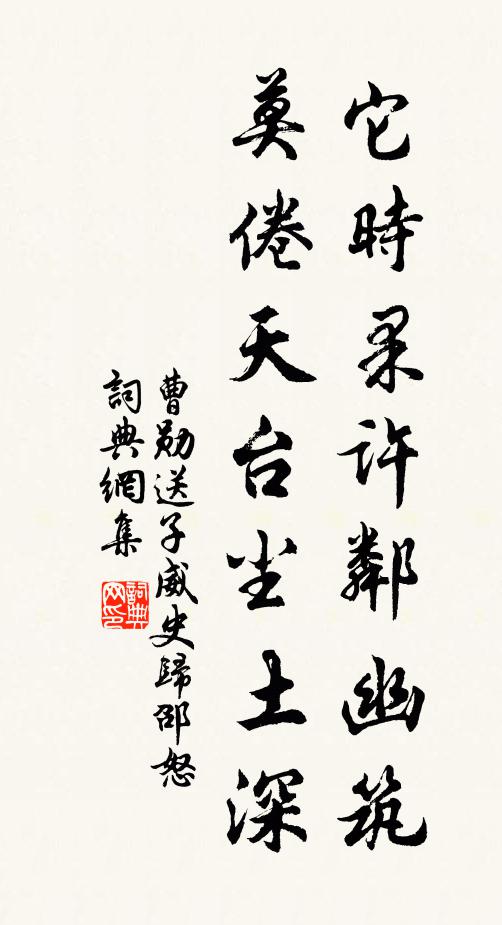 它時果許鄰幽筑
莫倦天台尘土深
曹勛送子威史歸邵怒
詞典網集
詞典网印